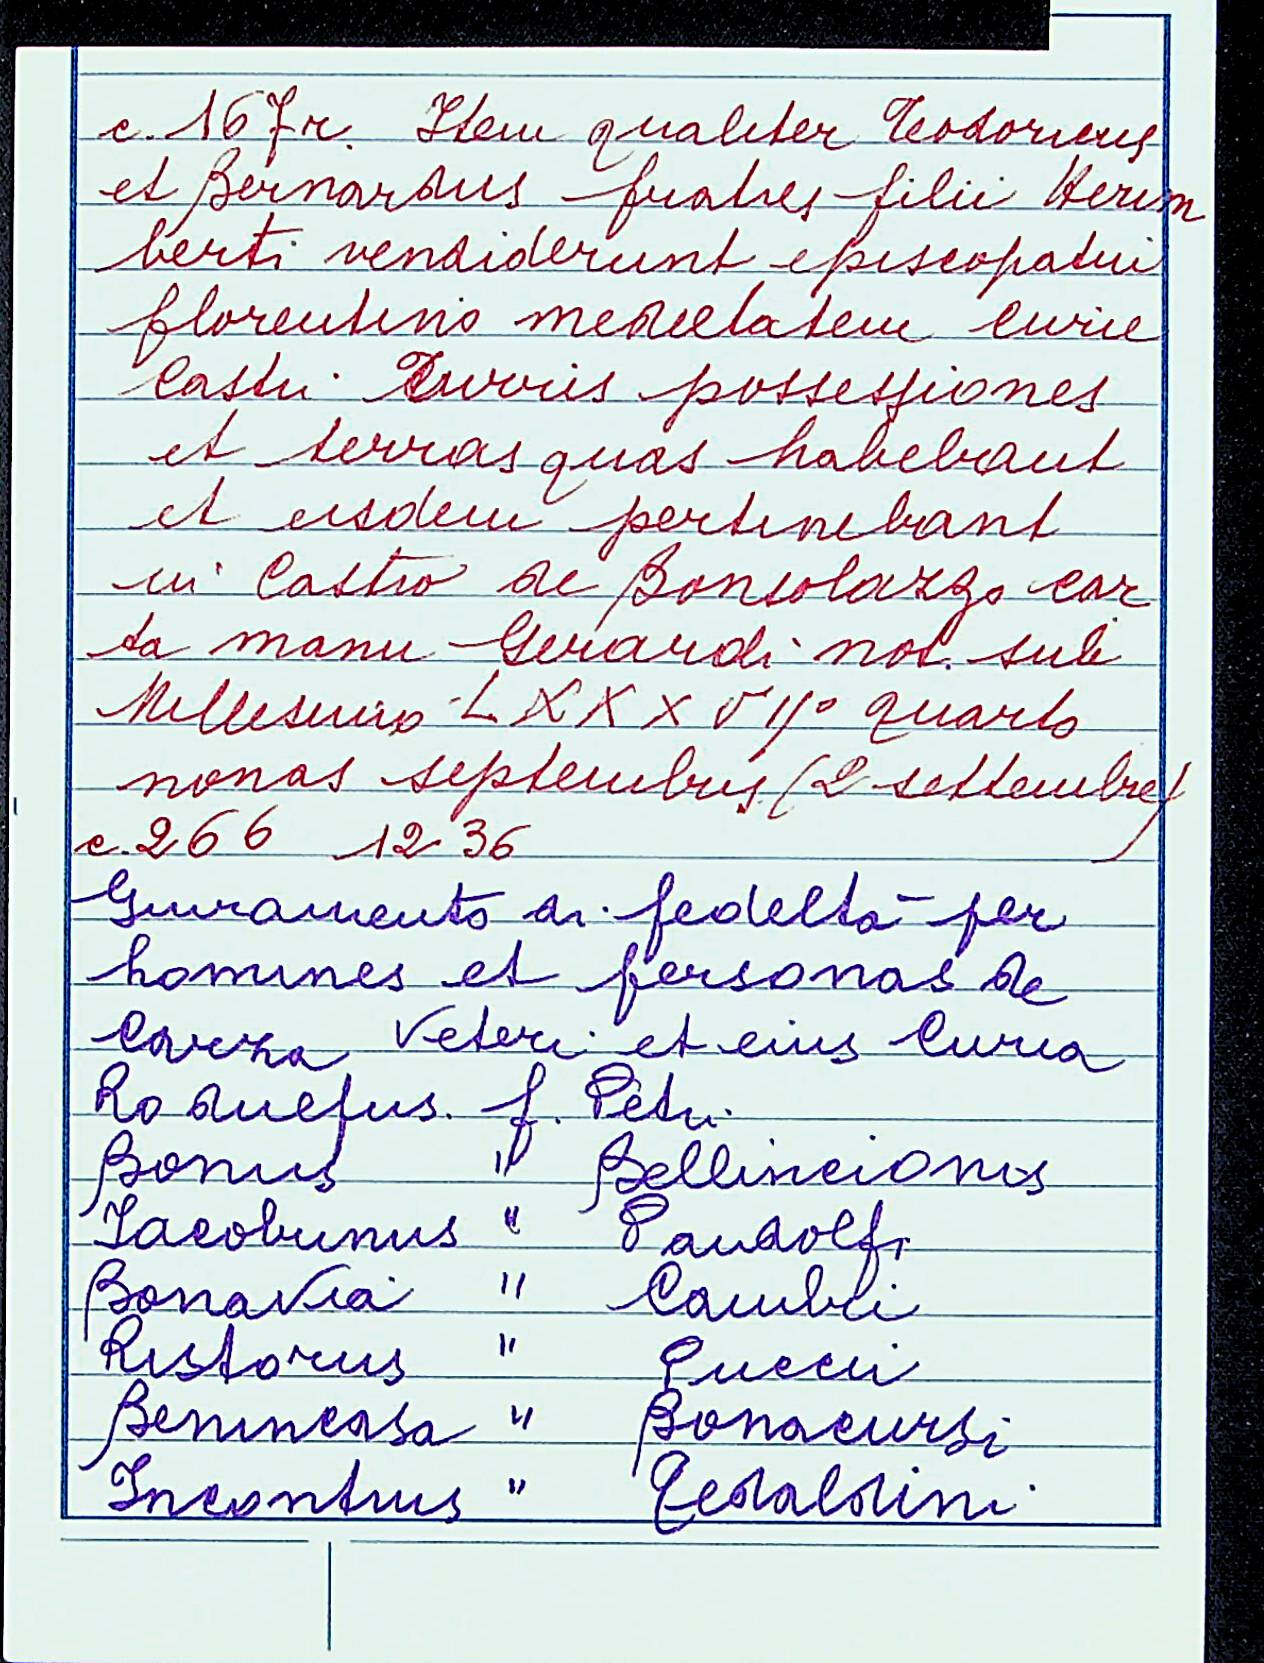 c. 167r. Item qualiter Teodoricus
et Bernardus fratres filii Herim
berti vendiderunt episcopatui
florentino medietatem Curie
Castri Turris possessiones
et terras quas habebant
et eisdem pertinebant
in Castro de Bonsolazzo car
ta manu Gerardi not. sub
Millesimo LXXXVIIº quarto
nonas septembris (2 settembre)
c. 266 1236
Giuramento di fedeltà per
homines et personas de
Cavrza Veteri et eius Curia
Roduelfus f. Petri
Bonus " Bellincionis
Iacobinus " Pandolfi
Bonavia " Cambii
Ristorus " Puccii
Benincasa " Bonacursi
Incontrus " Tedaldini